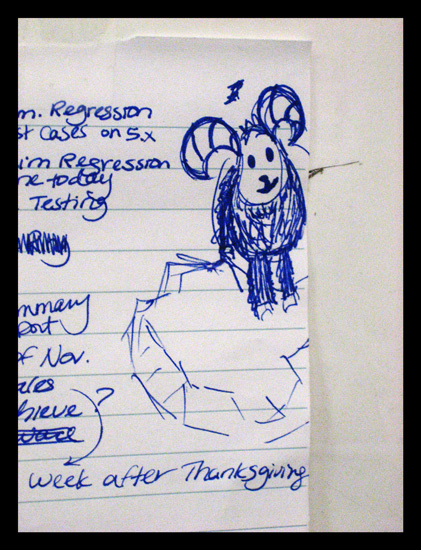 m. Regression
st Cases on 5.x
im Regression
ne today
Testing
mmary
port
of Nov.
ales
hieve ?
week after Thanksgiving